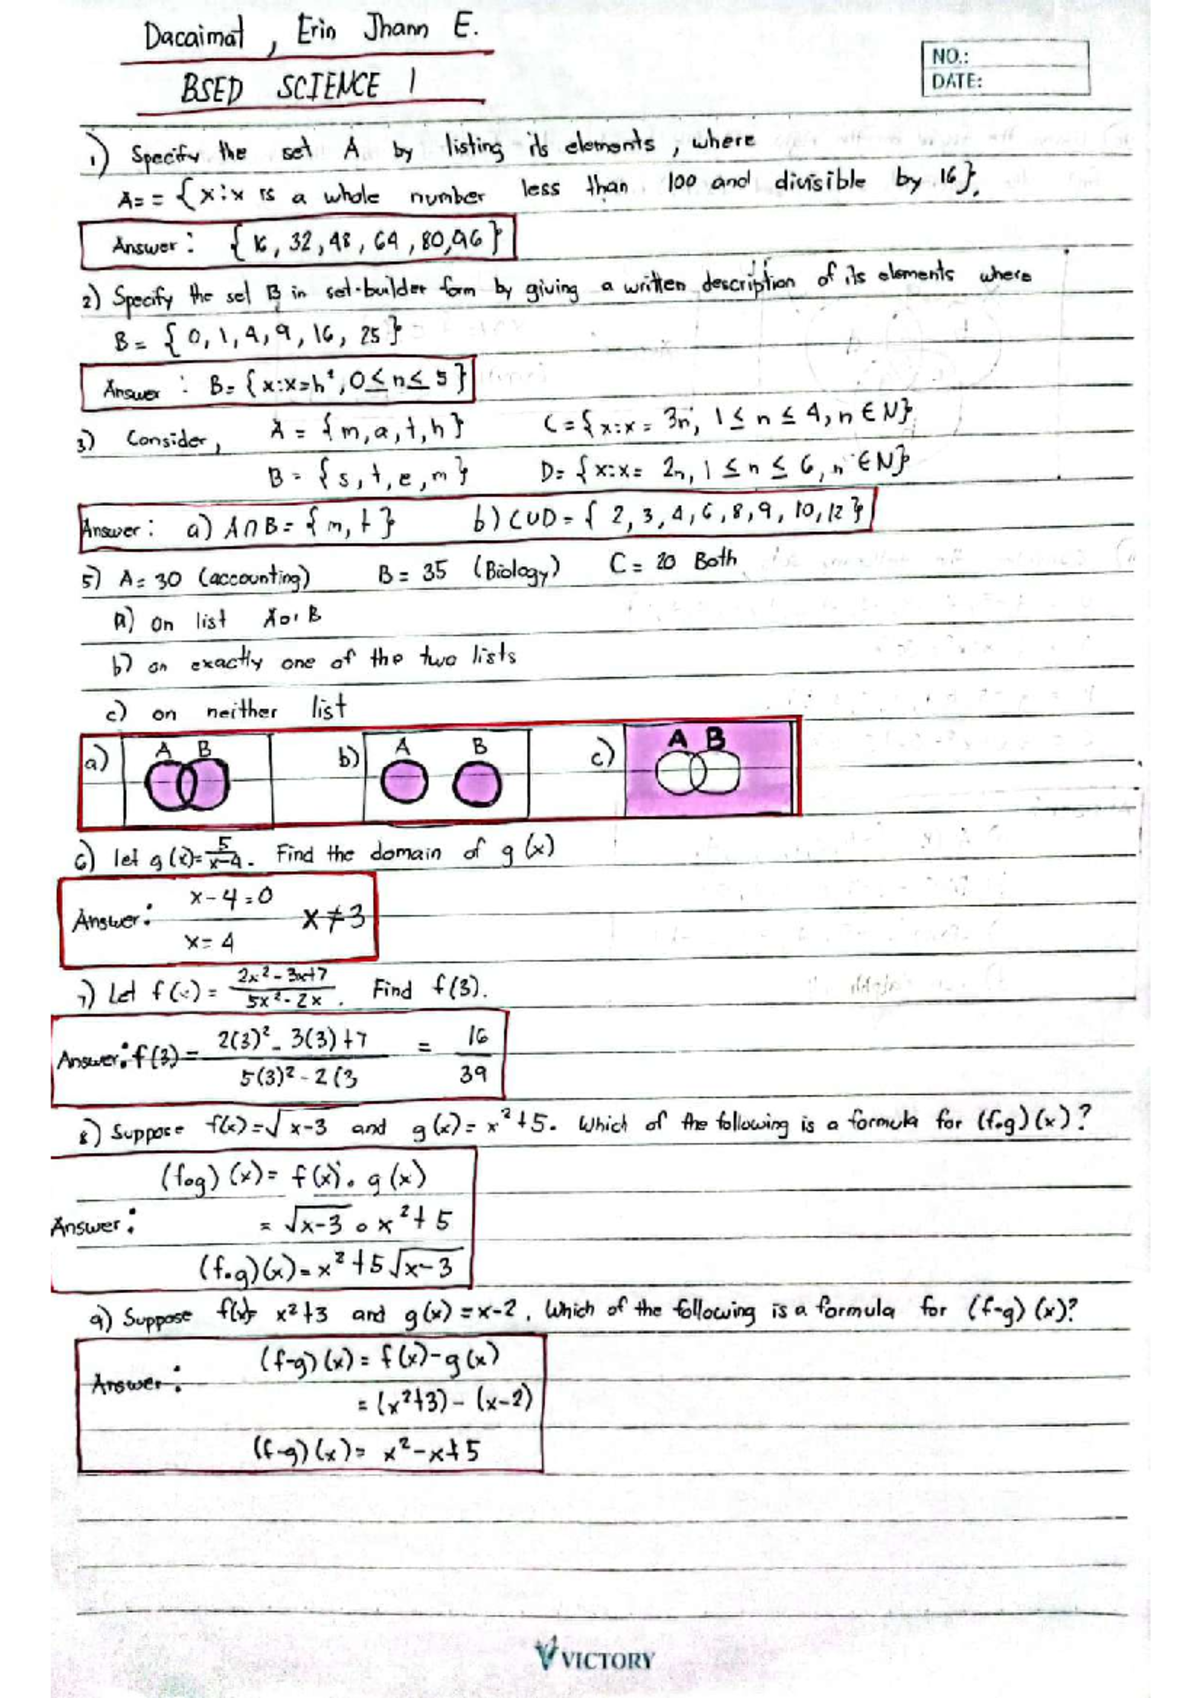 Dacaimat, Erin Jhann E.
BSED SCIENCE 1
NO.:
DATE:
1) Specify the set A by listing its elements, where
A = = {x:x is a whole number less than 100 and divisible by 16}.
Answer: {16, 32, 48, 64, 80, 96}
2) Specify the set B in set-builder form by giving a written description of its elements where
B = {0, 1, 4, 9, 16, 25}
Answer: B = {x:x=n², 0 ≤ n ≤ 5}
3) Consider, A = {m, a, t, h} C = {x:x = 3n, 1 ≤ n ≤ 4, n ∈ N}
B = {s, t, e, m} D = {x:x = 2n, 1 ≤ n ≤ 6, n ∈ N}
Answer: a) A∩B = {m, t} b) CUD = {2, 3, 4, 6, 8, 9, 10, 12}
5) A = 30 (accounting) B = 35 (Biology) C = 20 Both
a) on list A or B
b) on exactly one of the two lists
c) on neither list
a) A B b) A B c) A B
6) let g(x) = 5/x-4. Find the domain of g(x)
Answer: x-4=0 x≠3
x=4
7) Let f(x) = 2x²-3x+7/5x²-2x. Find f(3).
Answer: f(3) = 2(3)²-3(3)+7/5(3)²-2(3 = 16/39
8) Suppose f(x) = √x-3 and g(x) = x²+5. Which of the following is a formula for (f∘g)(x)?
(f∘g)(x) = f(x)∘g(x)
Answer: = √x-3 ∘ x²+5
(f∘g)(x) = x²+5√x-3
9) Suppose f(x)= x²+3 and g(x) = x-2. Which of the following is a formula for (f-g)(x)?
Answer: (f-g)(x) = f(x)-g(x)
= (x²+3) - (x-2)
(f-g)(x) = x²-x+5
VICTORY